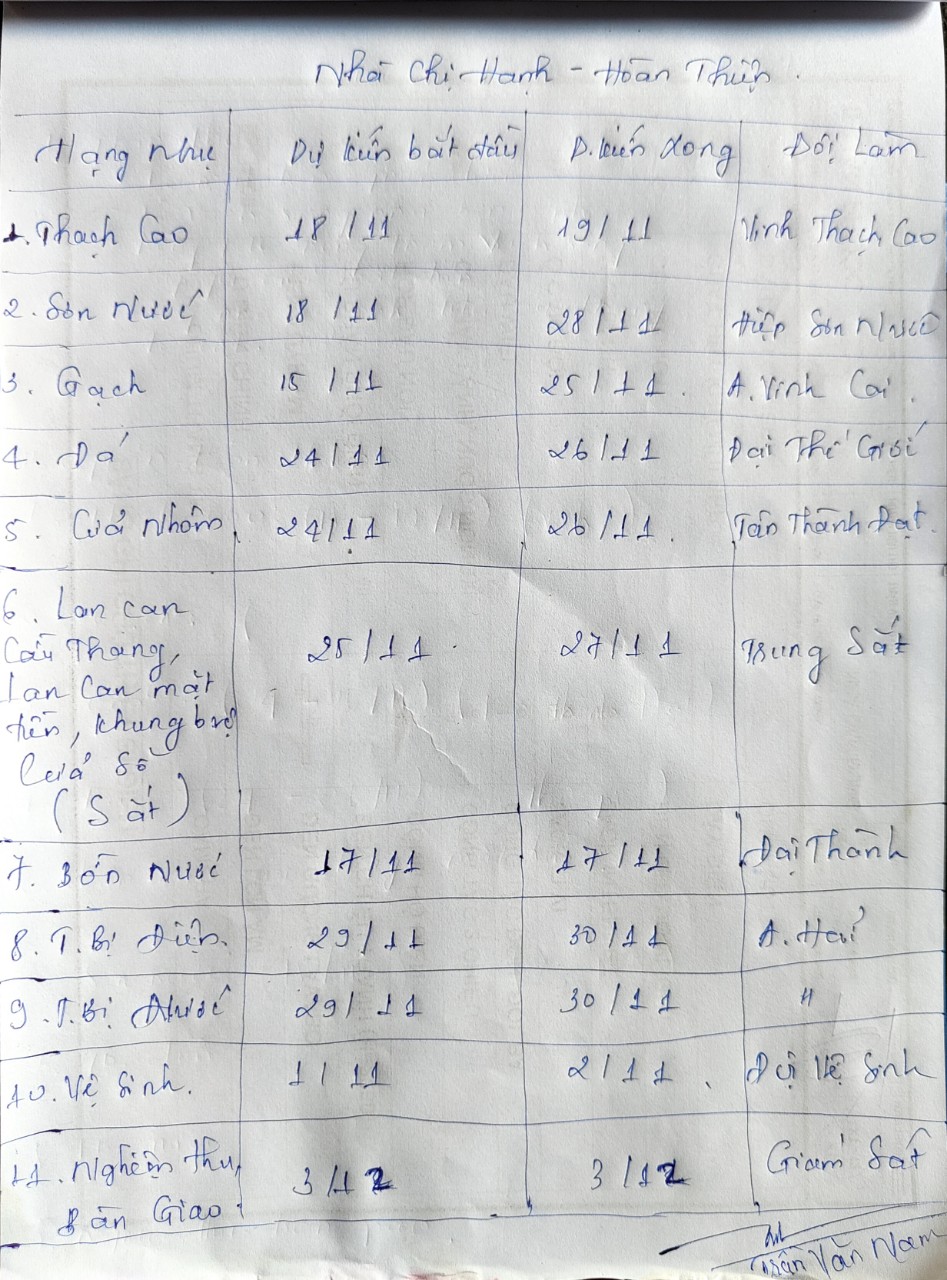 Nhà Chị Hạnh - Hoàn Thiện.
Hạng mục Dự kiến bắt đầu D.kiến xong Đội Làm
1. Thạch Cao 18/11 19/11 Vinh Thạch Cao
2. Sơn Nước 18/11 28/11 Hiệp Sơn Nước
3. Gạch 15/11 25/11. A. Vinh Cai.
4. Đá 24/11 26/11 Đại Thế Giới
5. Cửa Nhôm 24/11 26/11. Tấn Thành Đạt.
6. Lan can
Cầu Thang,
Lan Can mặt
tiền, khung bvệ
Cửa Sổ
(Sắt) 25/11. 27/11 Trung Sắt
7. Bồn Nước 17/11 17/11 Đại Thành
8. T. Bị Điện. 29/11 30/11 A. Hải
9. T. Bị Nước 29/11 30/11 "
10. Vệ Sinh. 1/11 2/11. Đội Vệ Sinh
11. Nghiệm thu,
Bàn Giao. 3/12 3/12 Giám Sát
Trần Văn Nam